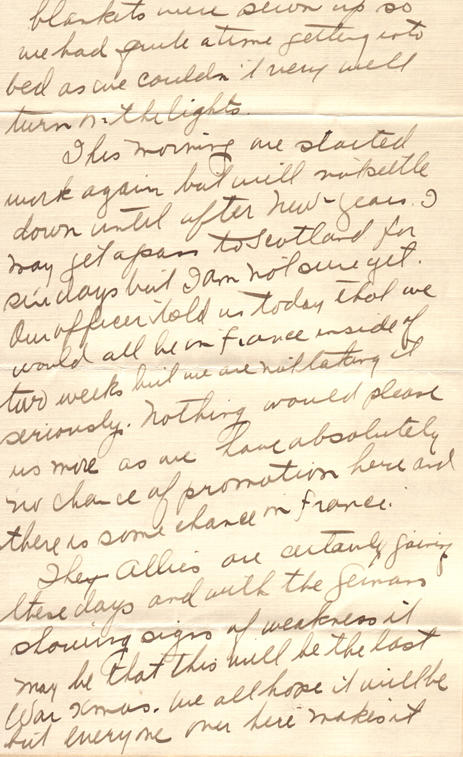 blankets were sewn up so
we had quite a time getting into
bed as we couldn't very well
turn on the lights.
This morning we started
work again but will not settle
down until after New-Years. I
may get a pass to Scotland for
six days but I am not sure yet.
Our officer told us today that we
would all be in France inside of
two weeks but we are not taking it
seriously. Nothing would please
us more as we have absolutely
no chance of promotion here and
there is some chance in France.
They Allies are certainly going
these days and with the Germans
showing signs of weakness it
may be that this will be the last
War Xmas. We all hope it will be
but everyone over here makes it